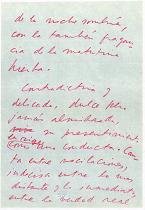 de la noche sombría,
con la también fragan
cia de la matutina
huerta.
Contradictoria y
delicada, dulce pero
jamás almibarada,
su presentimiento
como una conducta. Can
ta entre vacilaciones,
indecisa entre lo más
distante y lo inmediato,
entre la verdad real